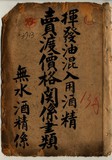 揮發油混入用酒精
賣渡價格關係書類
無水酒精係